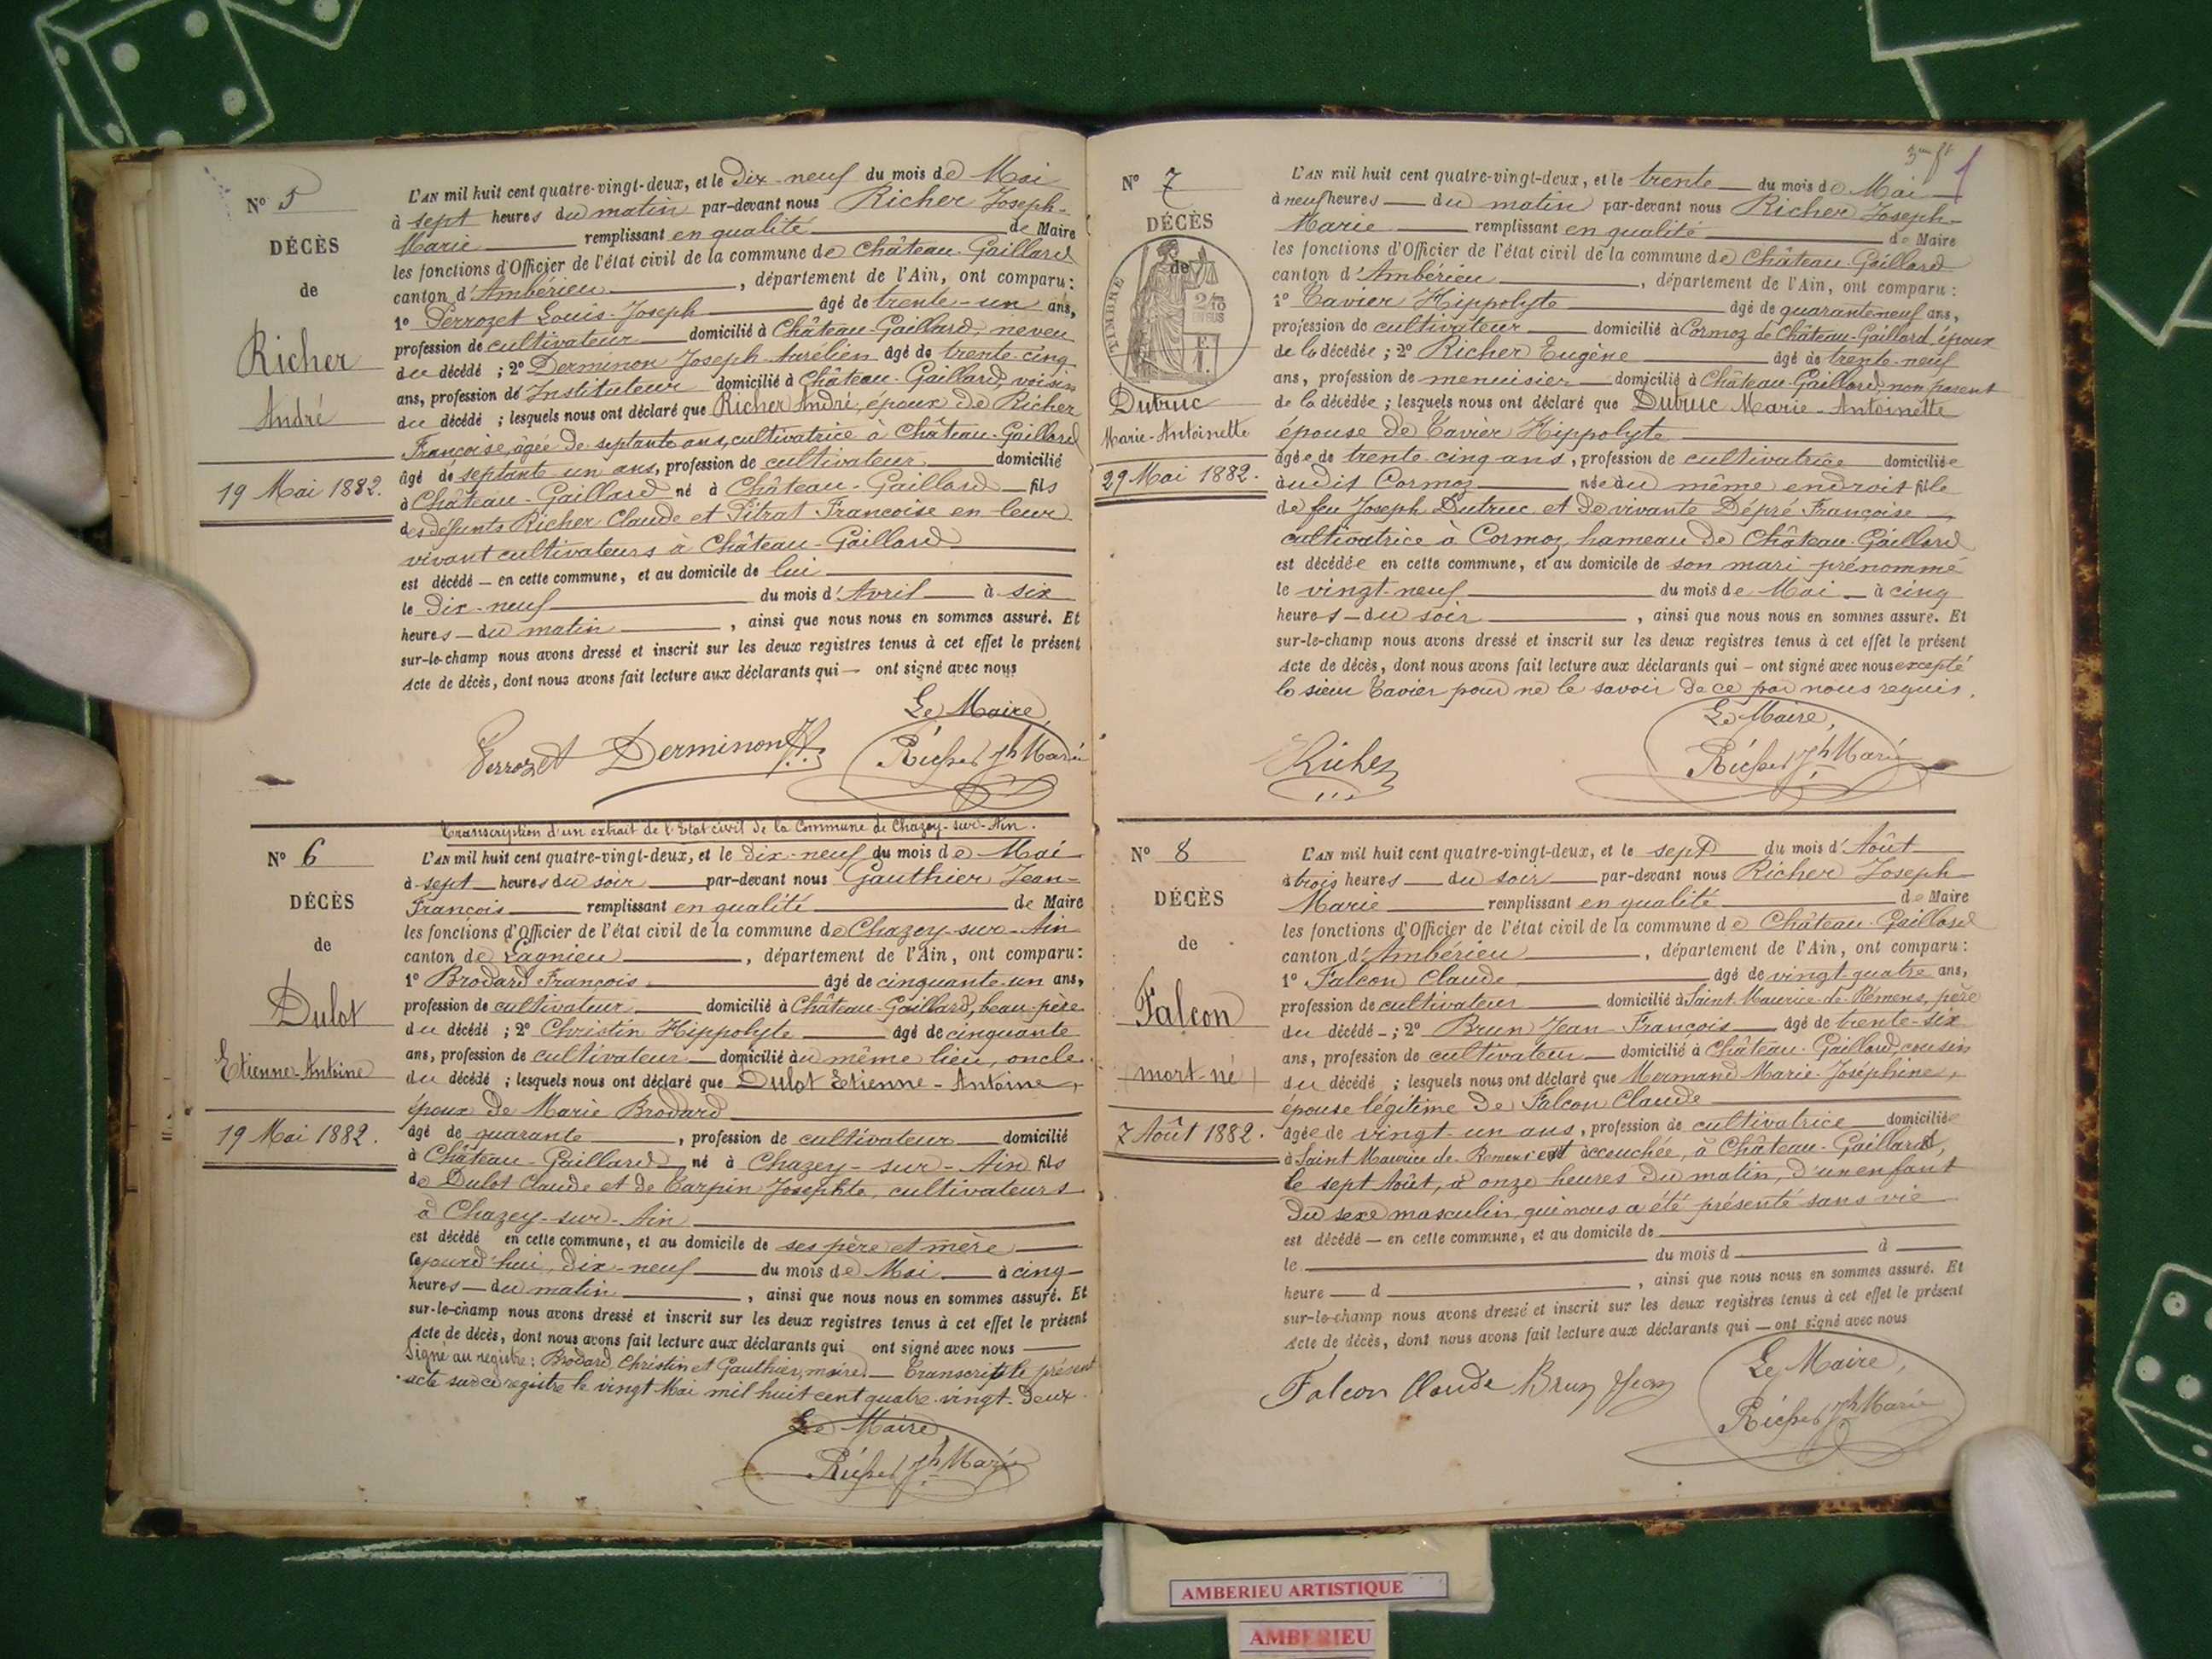 N° 5
DÉCÈS
de
Richer
André
19 Mai 1882.
L'AN mil huit cent quatre-vingt-deux, et le Dix-neuf du mois de Mai
à sept heures du matin par-devant nous Richer Joseph-
Marie remplissant en qualité de Maire
les fonctions d'Officier de l'état civil de la commune de Château-Gaillard
canton d'Ambérieu, département de l'Ain, ont comparu :
1° Perrozet Louis-Joseph âgé de trente-un ans,
profession de cultivateur domicilié à Château-Gaillard, neveu
du décédé ; 2° Derminon Joseph-Aurélien âgé de trente-cinq
ans, profession de Instituteur domicilié à Château-Gaillard, voisin
du décédé ; lesquels nous ont déclaré que Richer André, époux de Richer
Françoise, âgée de septante ans, cultivatrice à Château-Gaillard
âgé de septante un ans, profession de cultivateur domicilié
à Château-Gaillard né à Château-Gaillard fils
des défunts Richer Claude et Pitrat Françoise en leur
vivant cultivateurs à Château-Gaillard
est décédé – en cette commune, et au domicile de lui
le Dix-neuf du mois d'Avril à six
heures – du matin, ainsi que nous nous en sommes assuré. Et
sur-le-champ nous avons dressé et inscrit sur les deux registres tenus à cet effet le présent
Acte de décès, dont nous avons fait lecture aux déclarants qui – ont signé avec nous
Le Maire,
Perrozet Derminon Richer Jh Marie
Transcription d'un extrait de l'Etat civil de la Commune de Chazey-sur-Ain.
N° 6
DÉCÈS
de
Dulot
Etienne-Antoine
19 Mai 1882.
L'AN mil huit cent quatre-vingt-deux, et le Dix-neuf du mois de Mai
à sept heures du soir par-devant nous Gauthier Jean-
François remplissant en qualité de Maire
les fonctions d'Officier de l'état civil de la commune de Chazey-sur-Ain
canton de Lagnieu, département de l'Ain, ont comparu :
1° Brodard François âgé de cinquante-un ans,
profession de cultivateur domicilié à Château-Gaillard, beau-père
du décédé ; 2° Christin Hippolyte âgé de cinquante
ans, profession de cultivateur domicilié au même lieu, oncle
du décédé ; lesquels nous ont déclaré que Dulot Etienne-Antoine,
époux de Marie Brodard
âgé de quarante, profession de cultivateur domicilié
à Château-Gaillard né à Chazey-sur-Ain fils
de Dulot Claude et de Carpin Josephte, cultivateurs
à Chazey-sur-Ain
est décédé en cette commune, et au domicile de ses père et mère
Cejourd'hui, dix-neuf du mois de Mai à cinq
heures – du matin, ainsi que nous nous en sommes assuré. Et
sur-le-champ nous avons dressé et inscrit sur les deux registres tenus à cet effet le présent
Acte de décès, dont nous avons fait lecture aux déclarants qui ont signé avec nous
Signé au registre : Brodard, Christin et Gauthier, maire. – Transcrit le présent
acte sur ce registre le vingt Mai mil huit cent quatre-vingt-deux.
Le Maire,
Richer Jh Marie
3me ft
N° 7
DÉCÈS
de
TIMBRE
2/10
EN SUS
Dutruc
Marie-Antoinette
29 Mai 1882.
L'AN mil huit cent quatre-vingt-deux, et le trente du mois de Mai
à neuf heures – du matin par-devant nous Richer Joseph-
Marie remplissant en qualité de Maire
les fonctions d'Officier de l'état civil de la commune de Château-Gaillard
canton d'Ambérieu, département de l'Ain, ont comparu :
1° Cavier Hippolyte âgé de quarante neuf ans,
profession de cultivateur domicilié à Cormoz de Château-Gaillard, époux
de la décédée ; 2° Richer Eugène âgé de trente-neuf
ans, profession de menuisier domicilié à Château-Gaillard, non parent
de la décédée ; lesquels nous ont déclaré que Dutruc Marie-Antoinette
épouse de Cavier Hippolyte
âgée de trente-cinq ans, profession de cultivatrice domiciliée
audit Cormoz née au même endroit fille
de feu Joseph Dutruc et de vivante Dépré Françoise
cultivatrice à Cormoz, hameau de Château-Gaillard
est décédée en cette commune, et au domicile de son mari prénommé
le vingt-neuf du mois de Mai à cinq
heures – du soir, ainsi que nous nous en sommes assuré. Et
sur-le-champ nous avons dressé et inscrit sur les deux registres tenus à cet effet le présent
Acte de décès, dont nous avons fait lecture aux déclarants qui – ont signé avec nous excepté
le sieur Cavier pour ne le savoir de ce par nous requis.
Le Maire,
Richer Richer Jh Marie
N° 8
DÉCÈS
de
Falcon
(mort-né)
7 Août 1882.
L'AN mil huit cent quatre-vingt-deux, et le sept du mois d'Août
à trois heures – du soir par-devant nous Richer Joseph
Marie remplissant en qualité de Maire
les fonctions d'Officier de l'état civil de la commune de Château-Gaillard
canton d'Ambérieu, département de l'Ain, ont comparu :
1° Falcon Claude âgé de vingt-quatre ans,
profession de cultivateur domicilié à Saint-Maurice-de-Rémens, père
du décédé – ; 2° Brun Jean-François âgé de trente-six
ans, profession de cultivateur domicilié à Château-Gaillard, cousin
du décédé ; lesquels nous ont déclaré que Mermand Marie-Joséphine,
épouse légitime de Falcon Claude
âgée de vingt-un ans, profession de cultivatrice domiciliée
à Saint Maurice de Remens est accouchée, à Château-Gaillard,
le sept Août, à onze heures du matin, d'un enfant
du sexe masculin, qui nous a été présenté sans vie
est décédé – en cette commune, et au domicile de
le du mois d à
heure d, ainsi que nous nous en sommes assuré. Et
sur-le-champ nous avons dressé et inscrit sur les deux registres tenus à cet effet le présent
Acte de décès, dont nous avons fait lecture aux déclarants qui – ont signé avec nous
Le Maire,
Falcon Claude Brun Jean Richer Jh Marie
AMBERIEU ARTISTIQUE
AMBERIEU